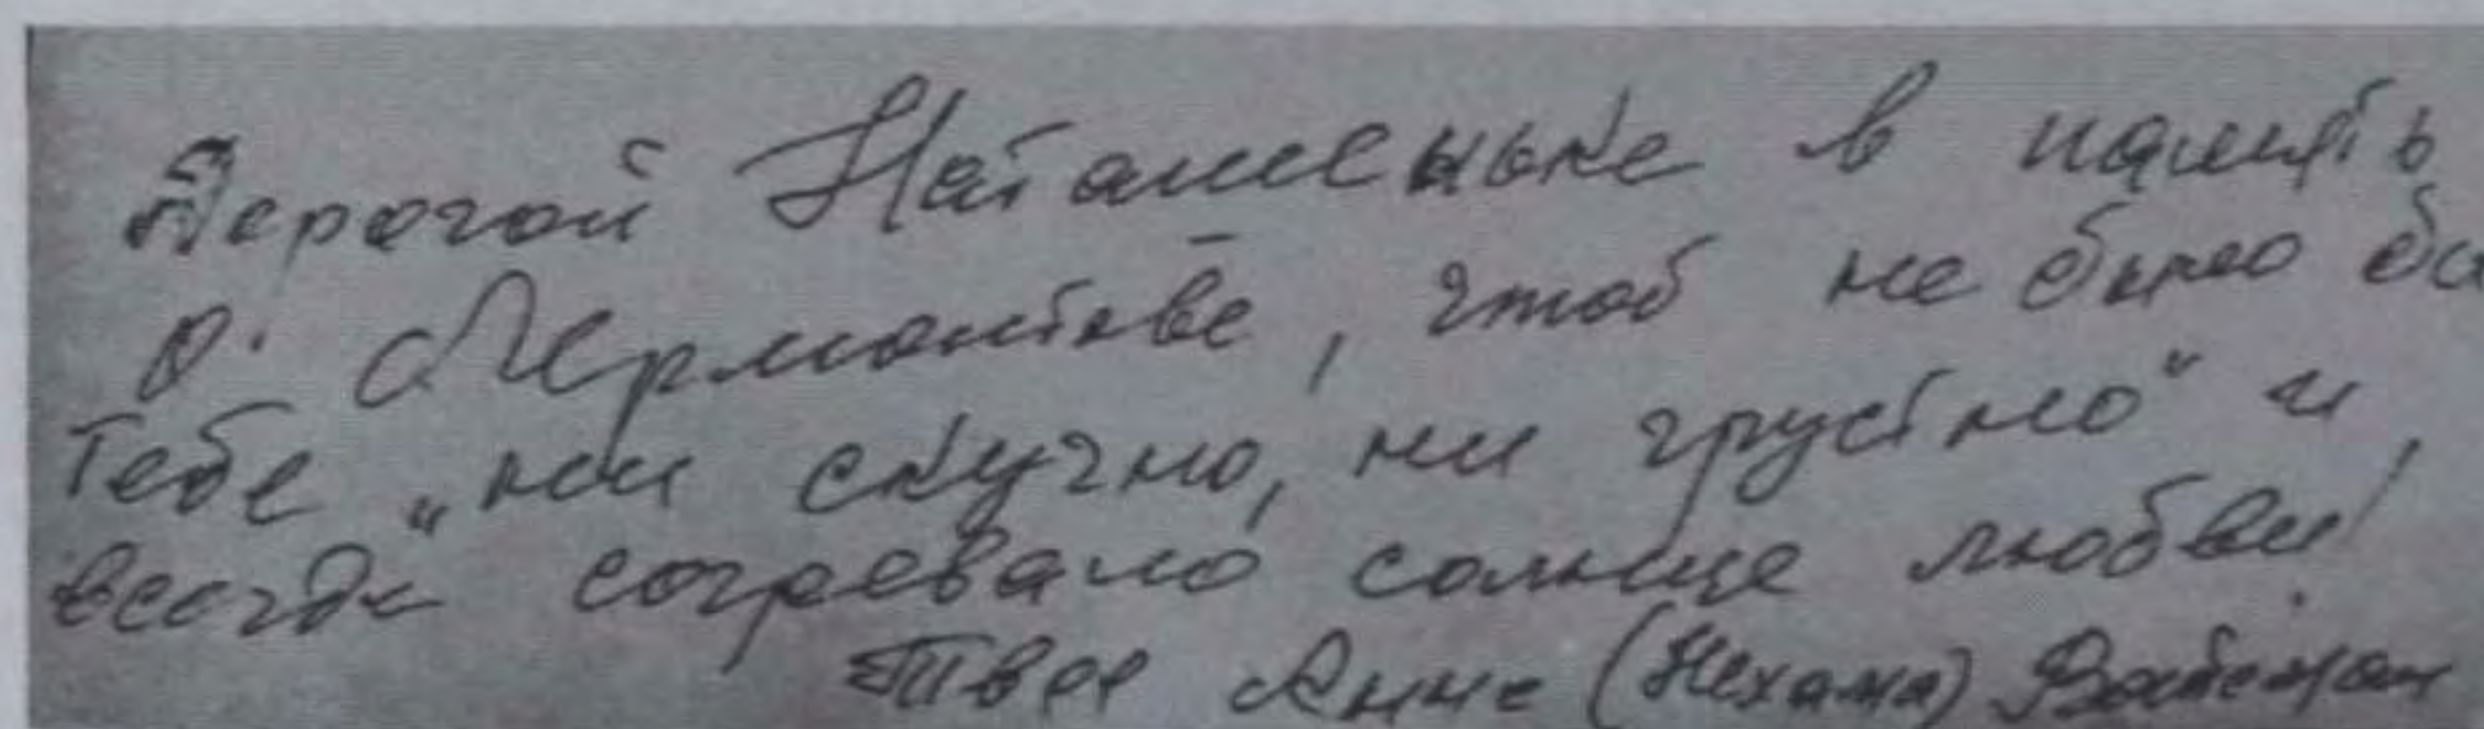 Дорогой Наташеньке в память
о Лермонтове, чтоб не было бы
Тебе „ни скучно, ни грустно" и
всегда согревало солнце любви!
Твоя Анна (Нехама)